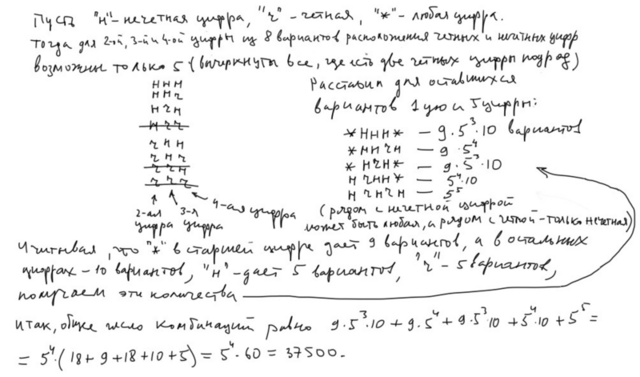 Пусть "н"-нечетная цифра, "ч"-четная, "*"-любая цифра.
Тогда для 2-ой, 3-ой и 4-ой цифры из 8 вариантов расположения четных и нечетных цифр
возможны только 5 (вычеркнуты все, где есть две четных цифры подряд)
ННН
ННЧ
НЧН
НЧЧ
ЧНН
ЧНЧ
ЧЧН
ЧЧЧ
2-ая цифра
3-я цифра
4-ая цифра
Расставим для оставшихся
вариантов 1 ую и 5 цифры:
*ННН* – 9·5³·10 вариантов
*ННЧН – 9·5⁴
*НЧН* – 9·5³·10
НЧНН* – 5⁴·10
НЧНЧН – 5⁵
(рядом с нечетной цифрой
может быть любая, а рядом с четной-только нечетная)
Учитывая, что "*" в старшей цифре дает 9 вариантов, а в остальных
цифрах – 10 вариантов, "н"-дает 5 вариантов, "ч"-5 вариантов,
получаем эти количества
Итак, общее число комбинаций равно 9·5³·10 + 9·5⁴ + 9·5³·10 + 5⁴·10 + 5⁵ =
= 5⁴·(18+9+18+10+5) = 5⁴·60 = 37500.